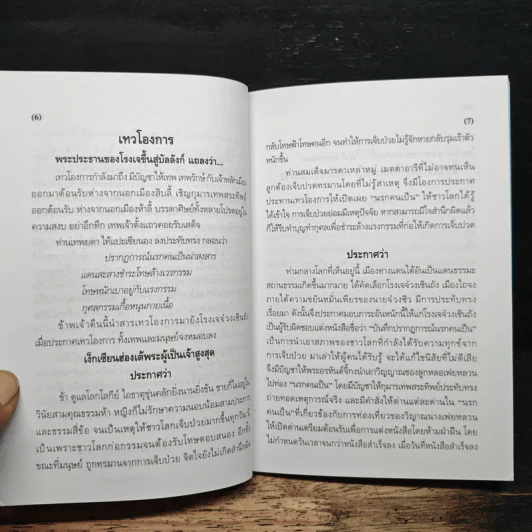 (6)
เทวโองการ
พระประธานของโรงเจขึ้นสู่บัลลังก์ แถลงว่า...
เทวโองการกำลังมาถึง มีบัญชาให้เทพ เทพรักษ์ กับเจ้าหลักเมือง
ออกมาต้อนรับห่างจากนอกเมืองสิบลี้ เชิญกุมารเทพสระทิพย์
ออกต้อนรับ ห่างจากนอกเมืองห้าลี้ บรรดาศิษย์ทั้งหลายโปรดอยู่ใน
ความสงบ อย่าอึกทึก เทพเจ้าตั้งแถวคอยรับเสด็จ
ท่านเทพยดา ไท้แปะเซียนอง ลงประทับทรง กลอนว่า
ปรากฏการณ์นรกคนเป็นนำสงสาร
แดนสะสางชำระโทษล้างเวรกรรม
โทษหนักเบาอยู่กับแรงกรรม
กุศลกรรมเกื้อหนุนภายเนื้อ
ข้าพเจ้าคืนนี้นำสารเทวโองการมายังโรงเจจ๋วงเซินถัง
เพื่อประกาศเทวโองการ ทั้งเทพและมนุษย์จงหมอบลง
เง็กเซียนฮ่องเต้พระผู้เป็นเจ้าสูงสุด
ประกาศว่า
ข้า ดูแลโลกโลกีย์ ไอธาตุขุ่นคลักยิ่งนานยิ่งข้น ชายก็ไม่อยู่ใน
วินัยสามคุณธรรมห้า หญิงก็ไม่รักษาความนอบน้อมสามประการ
และธรรมสี่ข้อ จนเป็นเหตุให้ชาวโลกเจ็บป่วยมากขึ้นทุกวัน นี้
เป็นเพราะชาวโลกก่อกรรมจนต้องรับโทษตอบสนอง อีกทั้ง
ขณะที่มนุษย์ ถูกทรมานจากการเจ็บป่วย จิตใจยังไม่เกิดสำนึกผิด
(7)
กลับโทษฟ้าโทษคนอีก จนทำให้การเจ็บป่วยไม่รู้จักหายกลับรุมเร้าตัว
หนักขึ้น
ท่านสมเด็จมารดาเหล่าหมู่ เมตตาอารีที่ไม่อาจทนเห็น
ลูกต้องเจ็บปวดทรมานโดยที่ไม่รู้สาเหตุ จึงมีโองการประกาศ
ประทานเทวโองการให้เปิดเผย "นรกคนเป็น" ให้ชาวโลกได้รู้
ได้เข้าใจ การเจ็บป่วยย่อมมีเหตุปัจจัย หากสามารถมีใจสำนึกผิดแล้ว
ก็ให้รีบทำบุญทำกุศลเพื่อชำระล้างแรงกรรมที่ก่อให้เกิดการเจ็บปวด
ประกาศว่า
ท่ามกลางโลกที่เห็นอยู่นี้ เมืองทางแดนใต้อันเป็นแดนธรรมะ
สถานธรรมเกิดขึ้นมากมาย ได้คัดเลือกโรงเจจ๋วงเซินถัง เมืองไถจง
ภายใต้ความขยันหมั่นเพียรของนายจ๋วงซิว มีการประทับทรง
เรื่อยมา ดังนั้นจึงประกาศมอบภาระอันหนักนี้ให้แก่โรงเจจ๋วงเซินถัง
เป็นผู้รับผิดชอบแต่งหนังสือชื่อว่า "บันทึกปรากฏการณ์นรกคนเป็น"
เป็นการนำเอาสภาพของชาวโลกที่กำลังได้รับความทุกข์จาก
การเจ็บป่วย มาเล่าให้ผู้คนได้รับรู้ จะได้แก้ไขนิสัยที่ไม่ดีเสีย
จึงมีบัญชาให้พระอรหันต์จี้กงนำเอาวิญญาณของลูกหลอเฟยหลวน
ไปท่อง "นรกคนเป็น" โดยมีบัญชาให้กุมารเทพสระทิพย์ประทับทรง
ถ่ายทอดเหตุการณ์จริง และมีคำสั่งให้ด่านแต่ละด่านใน "นรก
คนเป็น"ที่เกี่ยวข้องกับการท่องเที่ยวของวิญญาณนางเฟยหลวน
ให้เปิดด่านเตรียมต้อนรับเพื่อการแต่งหนังสือโดยห้ามฝ่าฝืน โดย
ไม่กำหนดวันเวลาจนกว่าหนังสือสำเร็จลง เมื่อวันที่หนังสือสำเร็จลง